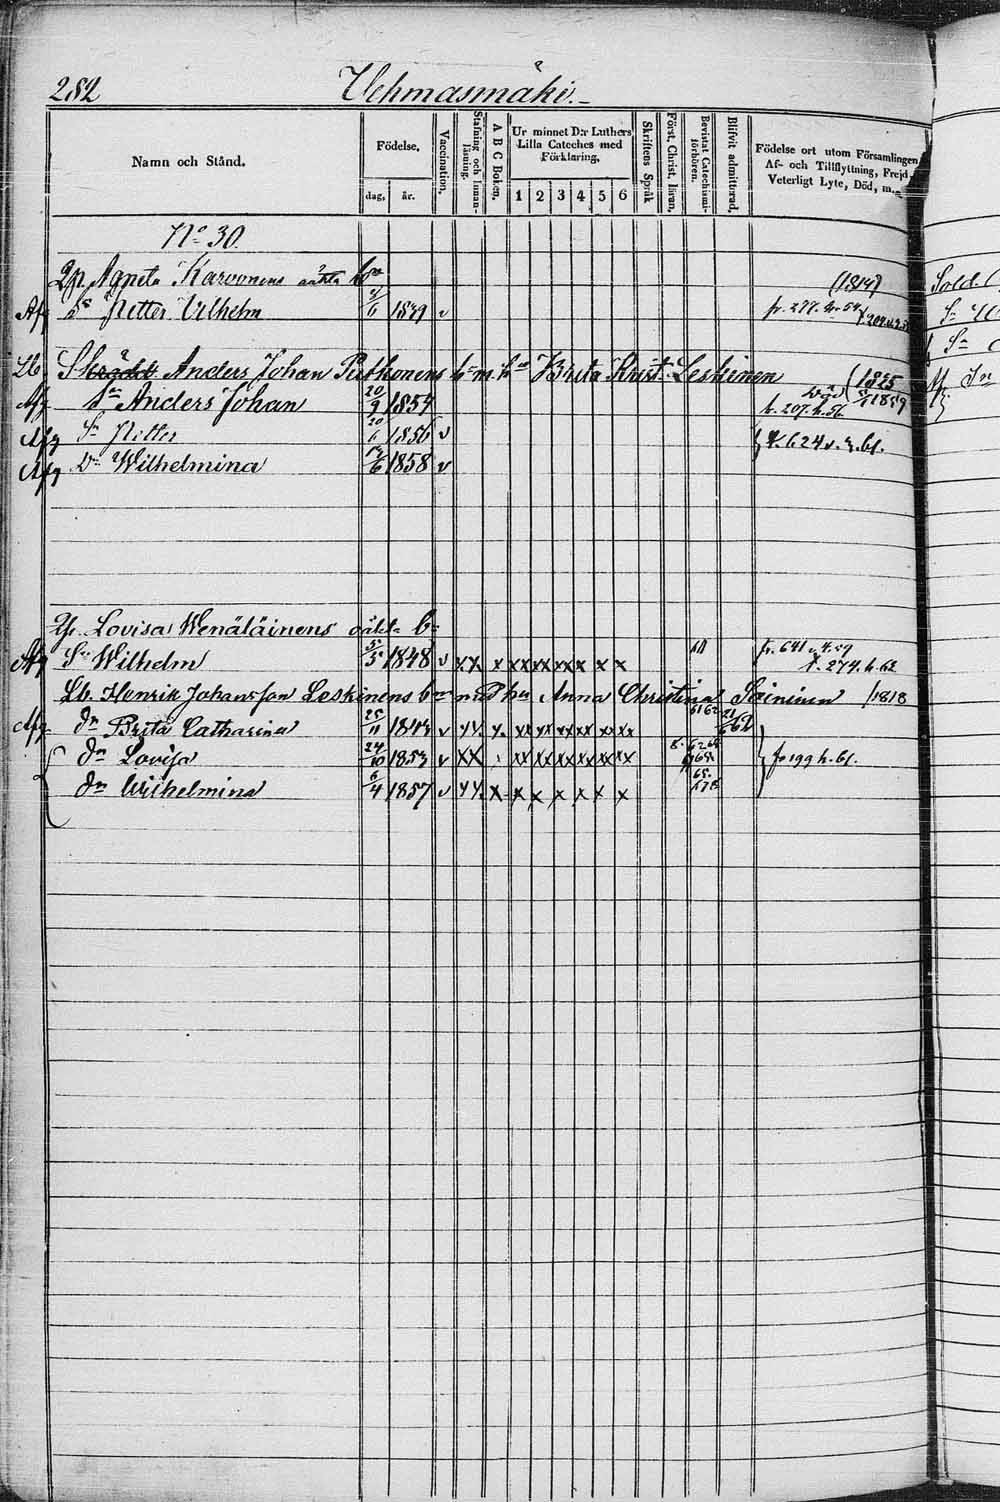 282 Vehmasmäki.
Namn och Stånd.
Födelse.
dag, år.
Vaccination.
Stafning och Innan-läsning.
A B C Boken.
Ur minnet D:r Luthers Lilla Cateches med Förklaring.
1 2 3 4 5 6
Skriftens Språk
Först. Christ. läran.
Bevistat Catechismi-förhören.
Blifvit admitterad.
Födelse ort utom Församlingen
Af- och Tillflyttning, Frejd
Veterligt Lyte, Död, m.
No 30.
Qp. Agneta Karvonens oäkta (1814) Sold.
Afg Sn Petter Vilhelm 6 1849 v fr. 277.
Lb. Skrädd. Anders Johan Putkonens bn m. hu Brita Krist. Leskinen (1825
Afg Sn Anders Johan 20/9 1854 t. 207. h. 56. 1859
Afg Sn Petter 20/6 1856 v
Afg Dr Wilhelmina 17/6 1858 v } t. 624 v. n. bl.
Qp. Lovisa Wenäläinens oäkt. b.
Afg Sn Wilhelm 5/5 1848 v xx x xx xx xx x x fr. 641 v. 4. 59 t. 274. h. 62
Lb. Henrik Johansson Leskinens bn med hu Anna Christina Toininen /1818
Afg dr Brita Catharina 25/11 1844 v xx. x. xx xx xx xx xx xx 6162
dr Lovisa 24/10 1853 v xx xx xx xx xx xx xx } fr 199 h. bl.
dr Wilhelmina 6/4 1857 v xx. x x x x x x x 65.